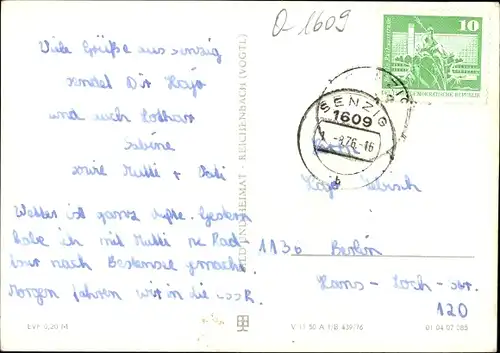 O-1609
Viele Grüße aus Senzig
sendet Dir Hajo
und auch Lothar
Sabine
sowie Mutti + Vati
Wetter ist ganz dufte. Gestern
habe ich mit Mutti ne Rad
tour nach Bestensee gemacht.
Morgen fahren wir in die ČSSR.
EVP 0,20 M
BILD UND HEIMAT · REICHENBACH (VOGTL)
V 11 50 A 1/B 439/76
01 04 07 085
10
DEMOKRATISCHE REPUBLIK
SENZIG
1609
-8.76.-16
b
Hajo
1136 Berlin
Hans-Loch-Str.
120